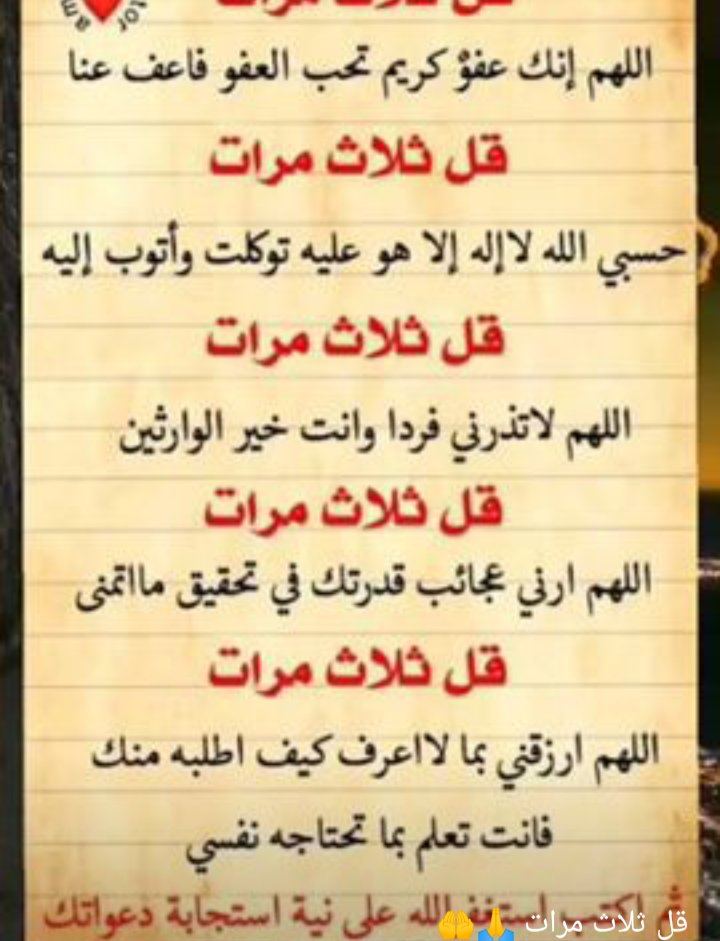 قل ثلاث مرات
اللهم إنك عفوٌ كريم تحب العفو فاعف عنا
قل ثلاث مرات
حسبي الله لاإله إلا هو عليه توكلت وأتوب إليه
قل ثلاث مرات
اللهم لاتذرني فردا وانت خير الوارثين
قل ثلاث مرات
اللهم ارني عجائب قدرتك في تحقيق مااتمنى
قل ثلاث مرات
اللهم ارزقني بما لااعرف كيف اطلبه منك
فانت تعلم بما تحتاجه نفسي
ثم اكتب استغفرالله على نية استجابة دعواتك
قل ثلاث مرات 🙏🤲